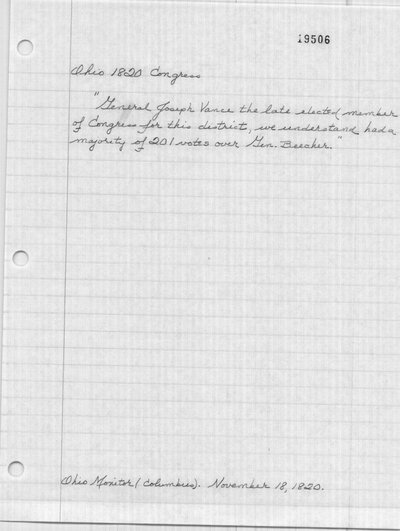 19506
Ohio 1820 Congress
"General Joseph Vance the late elected member
of Congress for this district, we understand had a
majority of 201 votes over Gen. Beecher."
Ohio Monitor (Columbus). November 18, 1820.